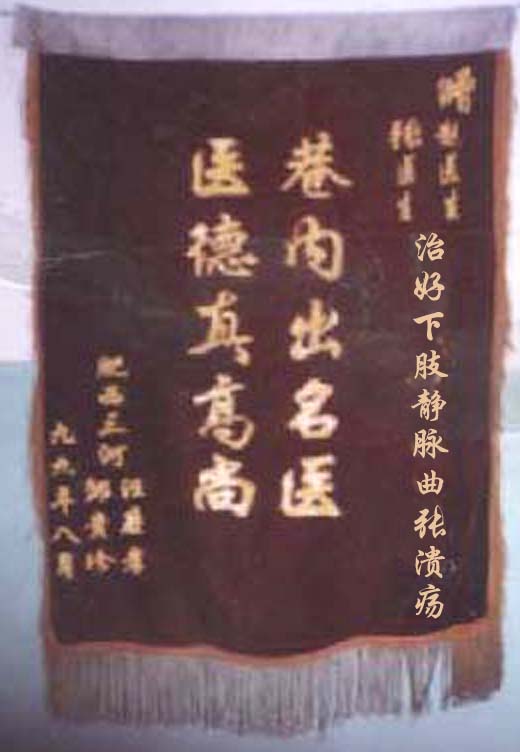 赠 医生
张医生
治好下肢静脉曲张溃疡
巷内出名医
医德真高尚
肥西三河
九九年八月